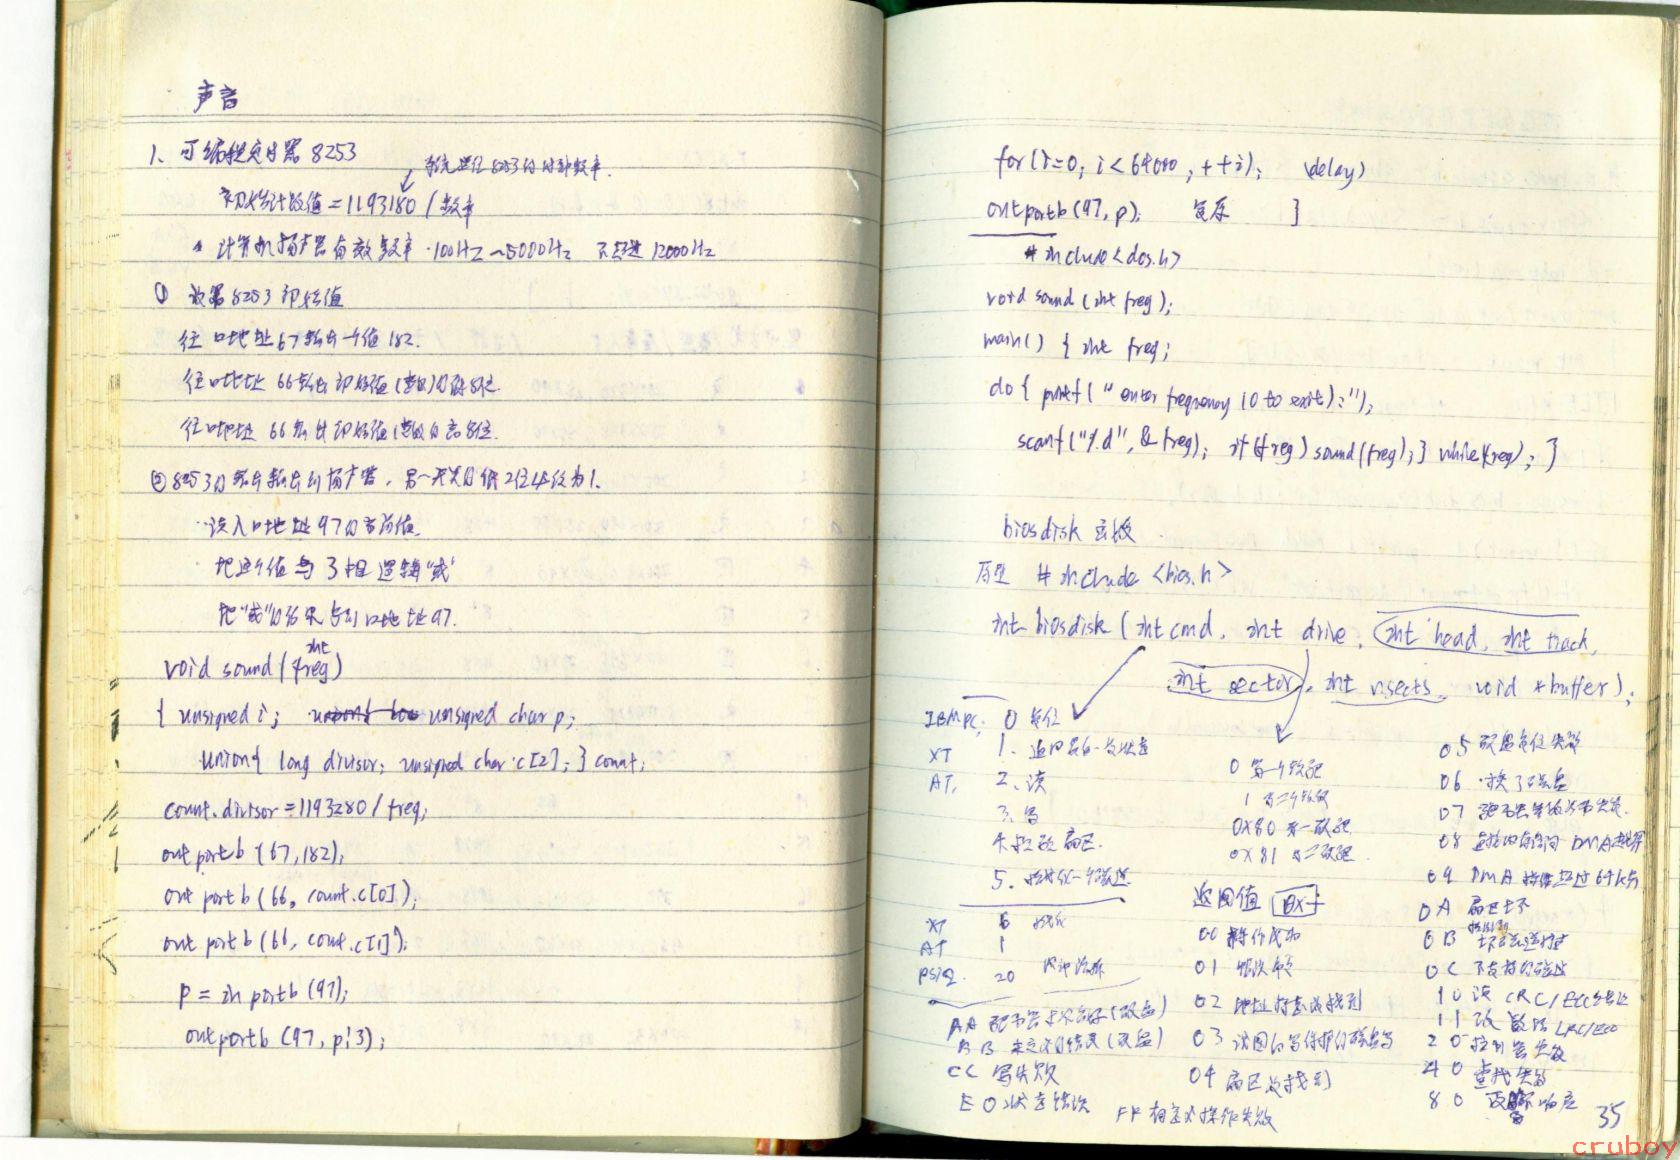 声音
1、可编程定时器 8253
系统送往8253的时钟频率.
初始计数值=1193180/频率
计算机扬声器有效频率·100Hz~5000Hz 不超过12000Hz
① 设置8253初始值
往口地址67输出一个值182.
往口地址 66输出初始值(整数)的低8位.
往口地址 66输出初始值(整数的高8位.
②8253的输出输出到扬声器，另一开关的低2位必须为1.
·读入口地址97的当前值.
把这个值与3相逻辑"或"
把"或"的结果写到口地址97.
int
void sound(freg)
{ unsigned i; unsigned char p;
union{ long divisor; unsigned char c[2];} count;
count.divisor=1193280/freg;
outportb(67,182);
outportb(66, count.c[0]);
outportb(66, count.c[1]);
p=inportb(97);
outportb(97, p¦3);
for(i=0; i<64000; ++i); (delay)
outportb(97,p); 复原 }
#include<dos.h>
void sound(int freg);
main() { int freg;
do{ printf("enter frequency (0 to exit):");
scanf("%d",&freg); if(freg) sound(freg);} while(freg); }
biosdisk 函数
原型 #include <bios.h>
int biosdisk(int cmd, int drive, int head, int track,
int sector, int nsects, void *buffer);
IBM PC; 0 复位
XT 1. 返回最后一次状态
AT, 2、读
3、写
4、校验扇区.
5. 格式化一个磁道
0 第一个软驱
1 第二个软驱
0X80 第一硬驱
0X81 第二硬驱
XT 6
AT 1
PS/2. 20 内部诊断
AA 驱动器未准备好(硬盘)
BB 未定义的错误(硬盘)
CC 写失败
E0 状态错误
FF 相定义操作失败
返回值
00 操作成功
01 错误命令
02 地址标志未找到
03 试图向写保护的磁盘写
04 扇区没找到
05 硬盘复位失败
06 换了磁盘
07 驱动器参数
08 DMA越界
09 DMA 操作超过64k
0A 扇区坏
0B
0C 不支持的磁道
10 读 CRC/ECC错误
11
20 控制器失败
40 查找失败
80 响应
35
cruboy